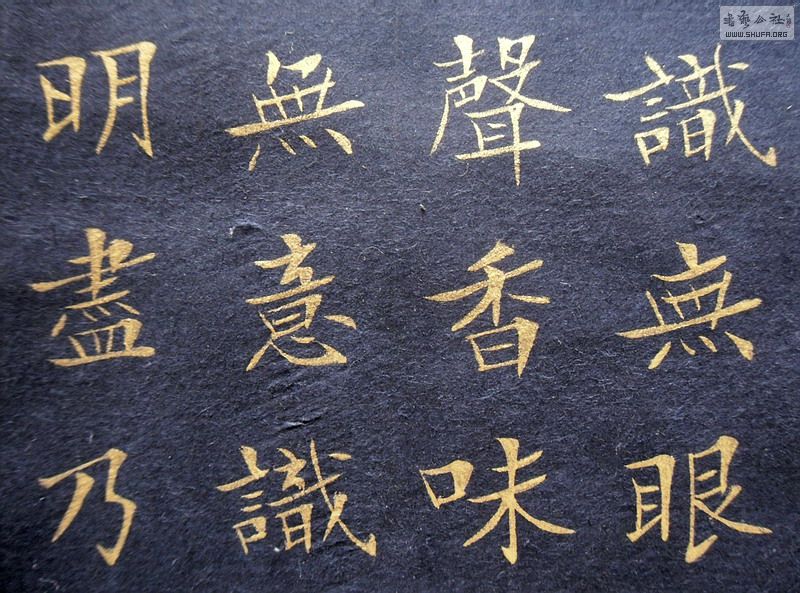 識無眼
聲香味
無意識
明盡乃
書藝公社
WWW.SHUFA.ORG